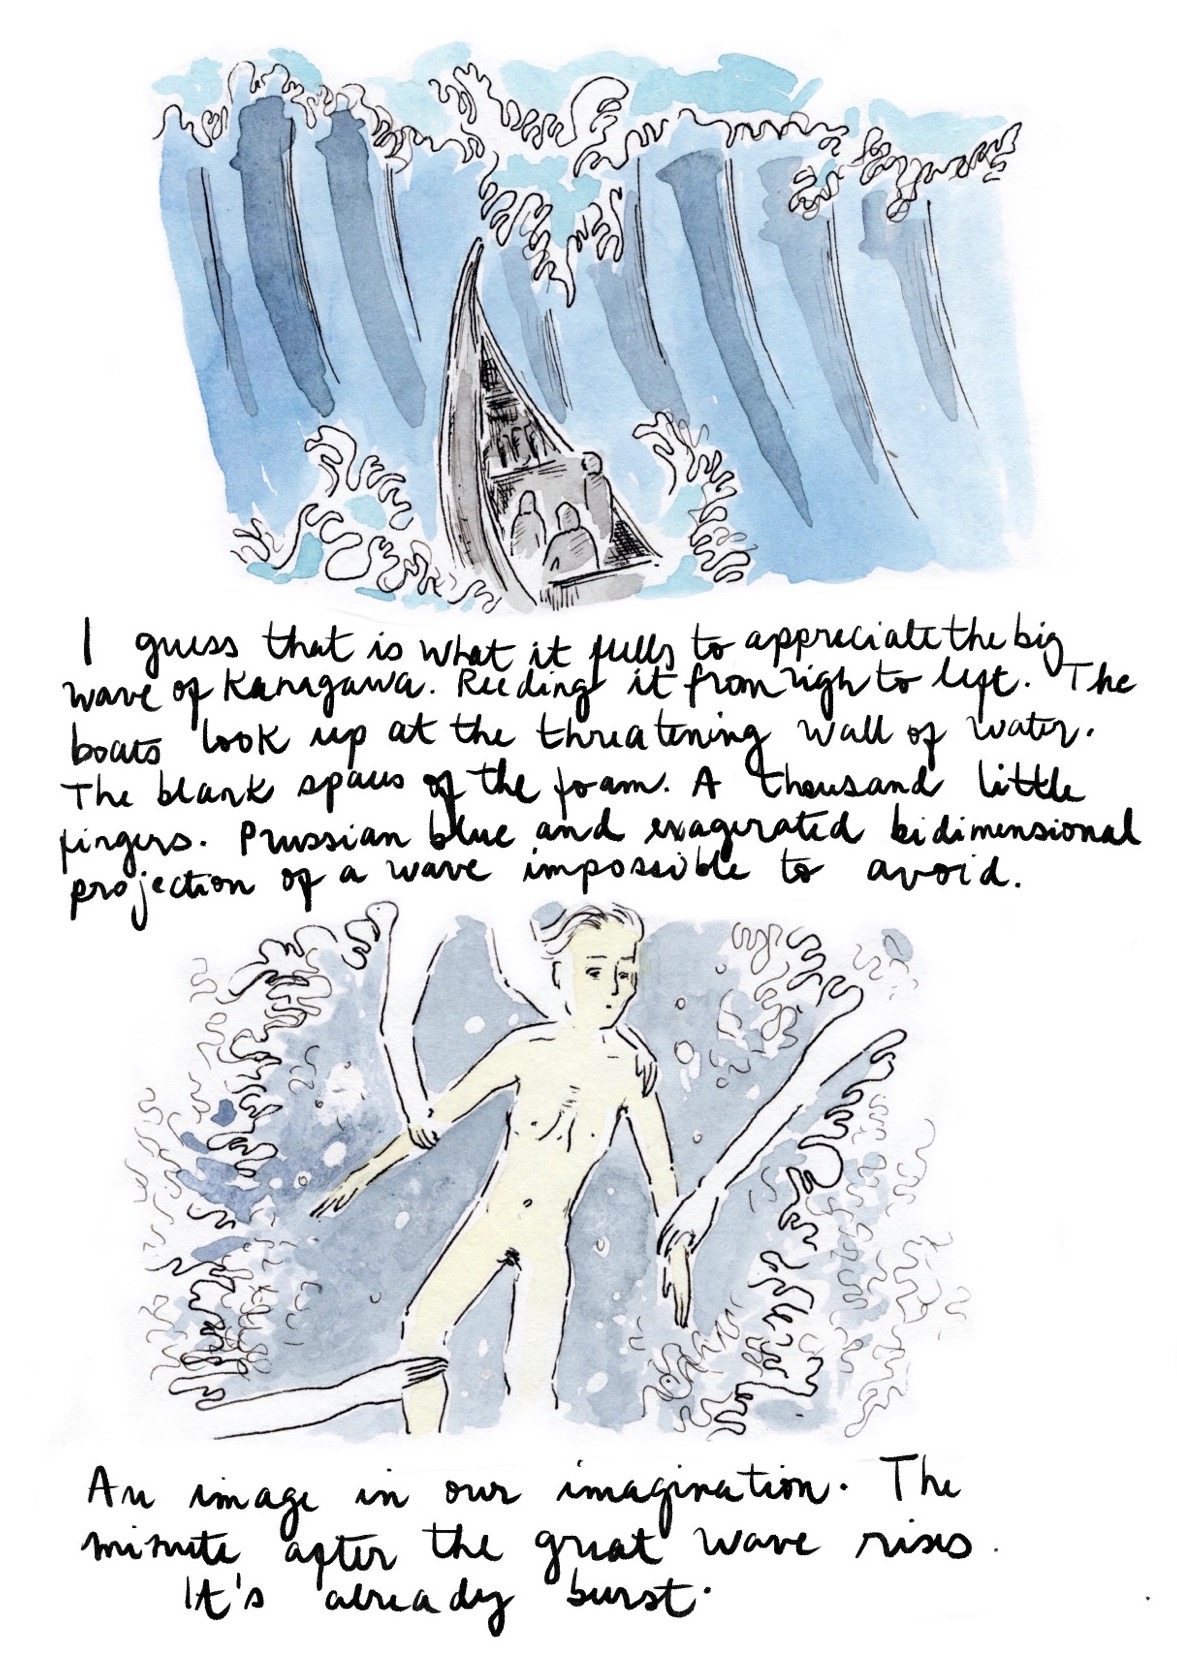 I guess that is what it fulls to appreciate the big
wave of Kanagawa. Reeding it from righ to left. The
boats look up at the threatening wall of water.
The blank spaces of the foam. A thousand little
fingers. Prussian blue and exagerated bidimensional
projection of a wave impossible to avoid.
An image in our imagination. The
minute after the great wave rises.
It's already burst.